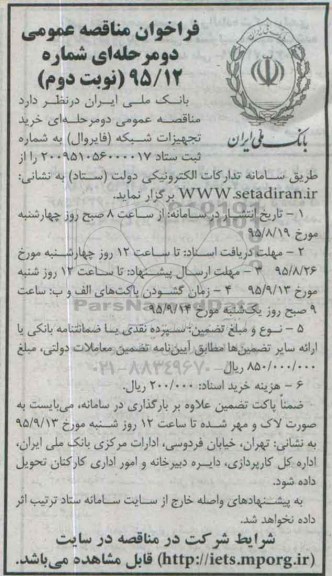 فراخوان مناقصه عمومی
دومرحله‌ای شماره
۹۵/۱۲ (نوبت دوم)
بانک ملی ایران
بانک ملی ایران درنظر دارد
مناقصه عمومی دومرحله‌ای خرید
تجهیزات شبکه (فایروال) به شماره
ثبت ستاد ۲۰۰۹۵۱۰۵۶۰۰۰۰۱۷ را از
طریق سامانه تدارکات الکترونیکی دولت (ستاد) به نشانی:
WWW.setadiran.ir برگزار نماید.
۱ - تاریخ انتشار در سامانه: از ساعت ۸ صبح روز چهارشنبه
مورخ ۹۵/۸/۱۹
۲ - مهلت دریافت اسناد: تا ساعت ۱۲ روز چهارشنبه مورخ
۹۵/۸/۲۶ ۳ - مهلت ارسال پیشنهاد: تا ساعت ۱۲ روز شنبه
مورخ ۹۵/۹/۱۳ ۴ - زمان گشودن پاکت‌های الف و ب: ساعت
۹ صبح روز یکشنبه مورخ ۹۵/۹/۱۴
۵ - نوع و مبلغ تضمین: سپرده نقدی یا ضمانتنامه بانکی یا
ارائه سایر تضمین‌ها مطابق آیین‌نامه تضمین معاملات دولتی، مبلغ
۸۵۰/۰۰۰/۰۰۰ ریال.
۶ - هزینه خرید اسناد: ۲۰۰/۰۰۰ ریال.
ضمناً پاکت تضمین علاوه بر بارگذاری در سامانه، می‌بایست به
صورت لاک و مهر شده تا ساعت ۱۲ روز شنبه مورخ ۹۵/۹/۱۳
به نشانی: تهران، خیابان فردوسی، ادارات مرکزی بانک ملی ایران،
اداره کل کارپردازی، دایره دبیرخانه و امور اداری کارکنان تحویل
داده شود.
به پیشنهادهای واصله خارج از سایت سامانه ستاد ترتیب اثر
داده نخواهد شد.
شرایط شرکت در مناقصه در سایت
(http://iets.mporg.ir) قابل مشاهده می‌باشد.
ParsNamadData
۰۲۱-۸۸۳۴۹۶۷۰